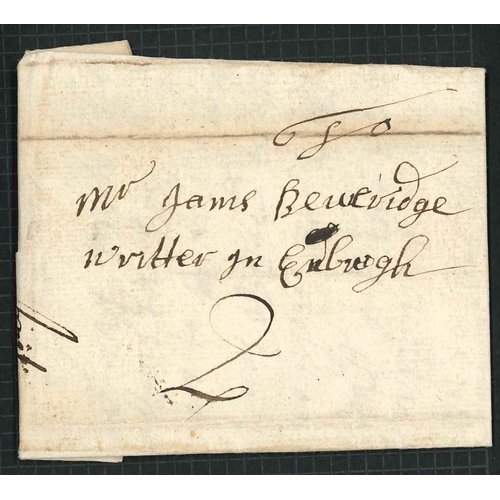 To
Mr Jams Beweridge
writter In Enbrogh
2